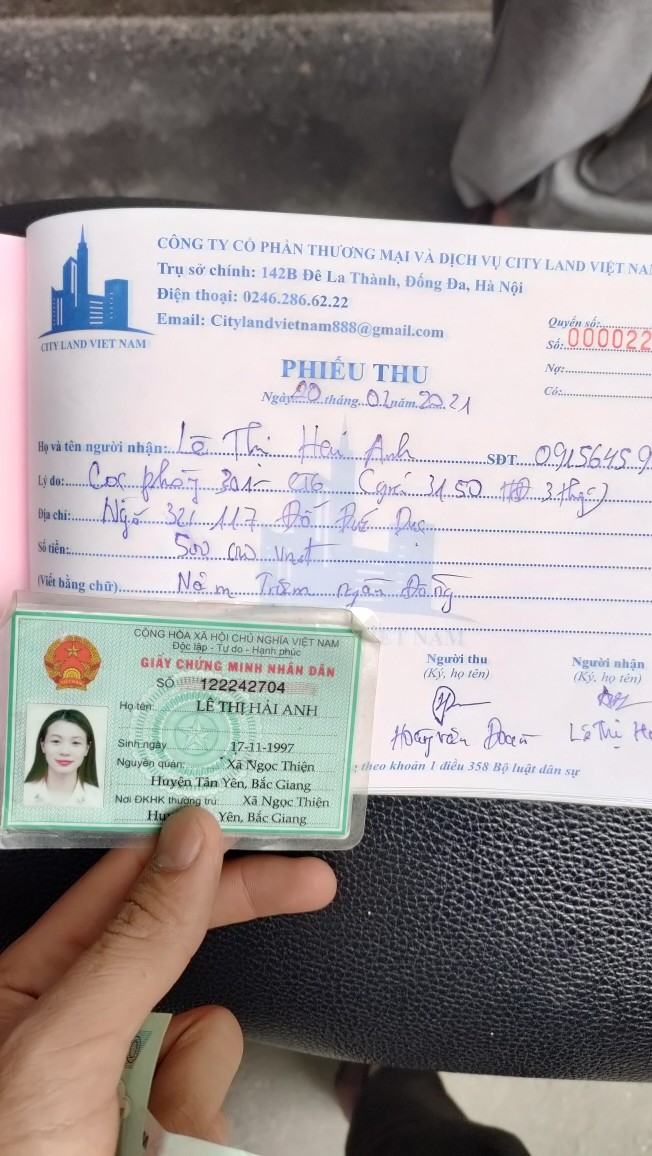 CÔNG TY CỔ PHẦN THƯƠNG MẠI VÀ DỊCH VỤ CITY LAND VIỆT NAM
Trụ sở chính: 142B Đê La Thành, Đống Đa, Hà Nội
Điện thoại: 0246.286.62.22
Email: Citylandvietnam888@gmail.com
CITY LAND VIET NAM
Quyển số:
Số: 000022
Nợ:
Có:
PHIẾU THU
Ngày 20 tháng 02 năm 2021
Họ và tên người nhận: Lê Thị Hải Anh SĐT 0915645.9
Lý do: Cọc phòng 301 - (giá 3150 HĐ 3 tháng)
Địa chỉ: Ngõ 32/117 Đức
Số tiền: 500 000 vnđ
(Viết bằng chữ) Năm Trăm ngàn Đồng
VIET NAM
Người thu
(Ký, họ tên)
Người nhận
(Ký, họ tên)
Hoàng văn Đoàn
Lê Thị Hả
theo khoản 1 điều 358 Bộ luật dân sự
CỘNG HÒA XÃ HỘI CHỦ NGHĨA VIỆT NAM
Độc lập - Tự do - Hạnh phúc
GIẤY CHỨNG MINH NHÂN DÂN
SỐ 122242704
Họ tên: LÊ THỊ HẢI ANH
Sinh ngày 17-11-1997
Nguyên quán: Xã Ngọc Thiện
Huyện Tân Yên, Bắc Giang
Nơi ĐKHK thường trú: Xã Ngọc Thiện
Yên, Bắc Giang